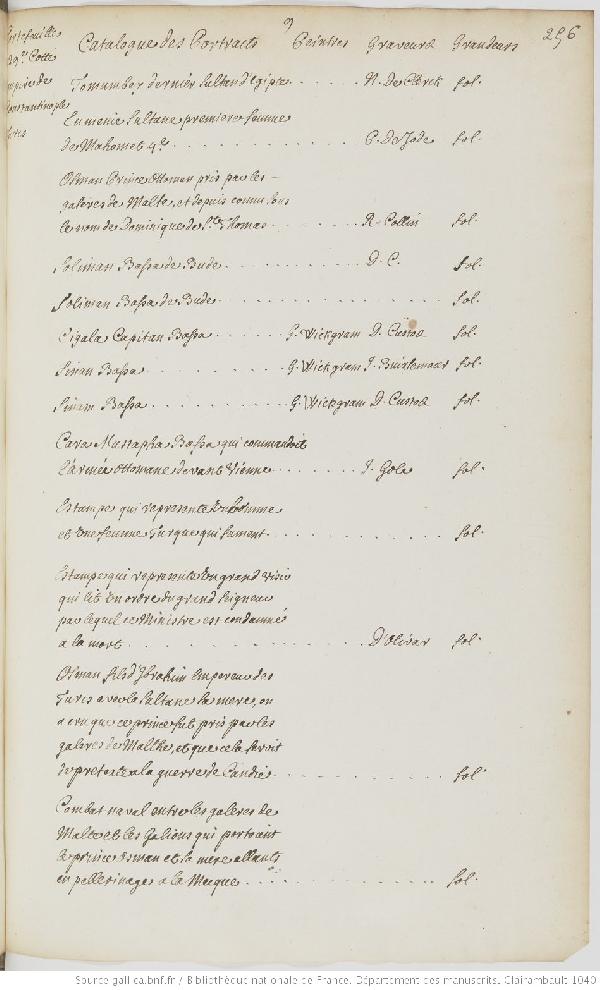 9
256
Portefeuille
29.e Cotte
Empire de
Constantinople
Turcs
Catalogue des Portraits Peintres Graveurs Grandeurs
Tomumber dernier Sultan d'Egipte . . . . . . N. De Clerck fol.
Eumenie Sultane premiere femme
de Mahomet 4.e . . . . . . . . . . . . P. De Jode fol.
Osman Prince Ottoman pris par les –
galeres de Malte, et depuis connu sous
le nom de Dominique de S.t Thomas . . . . . . . R. Collin fol.
Soliman Bassa de Bude . . . . . . . . . . D. C. fol.
Soliman Bassa de Bude . . . . . . . . . . . . . . . fol.
Cigala Capitan Bassa . . . . . . G. Wickgram D. Custos fol.
Sinan Bassa . . . . . . . . . . G. Wickgram J. fol.
Sinam Bassa . . . . . . . . . . G. Wickgram D. Custos fol.
Cara Mustapha Bassa qui commandoit
l'armée ottomane devant Vienne . . . . . . J. Gole fol.
Estampe qui represente Un homme
et Une femme Turque qui fument . . . . . . . . . . . fol.
Estampe qui represente Un grand Visir
qui lit Un ordre du grand Seigneur
par lequel ce Ministre est condamné
a la mort . . . . . . . . . . . . . . . D'Olivar fol.
Osman fils d'Ibrahim Empereur des
Turcs avec la Sultane sa mere, on
a cru que ce prince fut pris par les
galeres de Malthe, et que cela servit
de pretexte a la guerre de Candie . . . . . . . . . . fol.
Combat naval entre les galeres de
Malte et les Galions qui portoient
le prince osman et sa mere allants
en pellerinage a la Mecque . . . . . . . . . . . . fol.
Source gallica.bnf.fr / Bibliothèque nationale de France. Département des manuscrits. Clairambault 1040